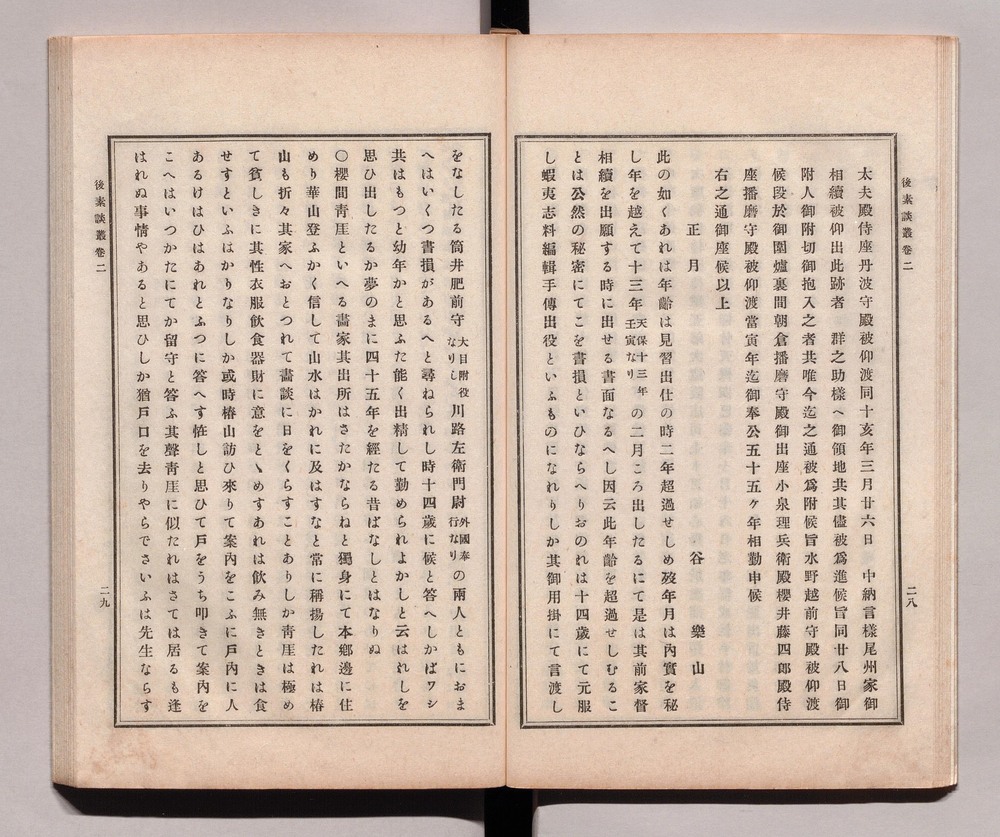 後素談叢卷二
二八
太夫殿侍座丹波守殿被仰渡同十亥年三月廿六日　中納言樣尾州家御
相續被仰出此跡者　群之助樣へ御領地共其儘被爲進候旨同廿八日御
附人御附切御抱入之者共唯今迄之通被爲附候旨水野越前守殿被仰渡
候段於御圍爐裏間朝倉播磨守殿御出座小泉理兵衛殿櫻井藤四郎殿侍
座播磨守殿被仰渡當寅年迄御奉公五十五ヶ年相勤申候
右之通御座候以上
正月　谷樂山
此の如くあれは年齡は見習出仕の時二年超過せしめ歿年月は內實を秘
し年を越えて十三年天保十三年壬寅なりの二月ころ出したるにて是は其前家督
相續を出願する時に出せる書面なるへし因云此年齡を超過せしむるこ
とは公然の秘密にてこを書損といひならへりおのれは十四歲にて元服
し蝦夷志料編輯手傳出役といふものになれりしか其御用掛にて言渡し
をなしたる筒井肥前守大目附役なりし川路左衛門尉外國奉行なりの兩人ともにおま
へはいくつ書損があるへと尋ねられし時十四歲に候と答へしかばワシ
共はもつと幼年かと思ふた能く出精して勤められよかしと云はれしを
思ひ出したるか夢のまに四十五年を經たる昔ばなしとはなりぬ
〇櫻間靑厓といへる畵家其出所はさたかならねと獨身にて本鄕邊に住
めり華山登ふかく信して山水はかれに及はすなと常に稱揚したれは椿
山も折々其家へおとつれて畵談に日をくらすことありしか靑厓は極め
て貧しきに其性衣服飮食器財に意をとゝめすあれは飮み無きときは食
せすといふはかりなりしか或時椿山訪ひ來りて案內をこふに戶內に人
あるけはひはあれとふつに答へす恠しと思ひて戶をうち叩きて案內を
こへはいつかたにてか留守と答ふ其聲靑厓に似たれはさては居るも逢
はれぬ事情やあると思ひしか猶戶口を去りやらでさいふは先生ならす
後素談叢卷二
二九